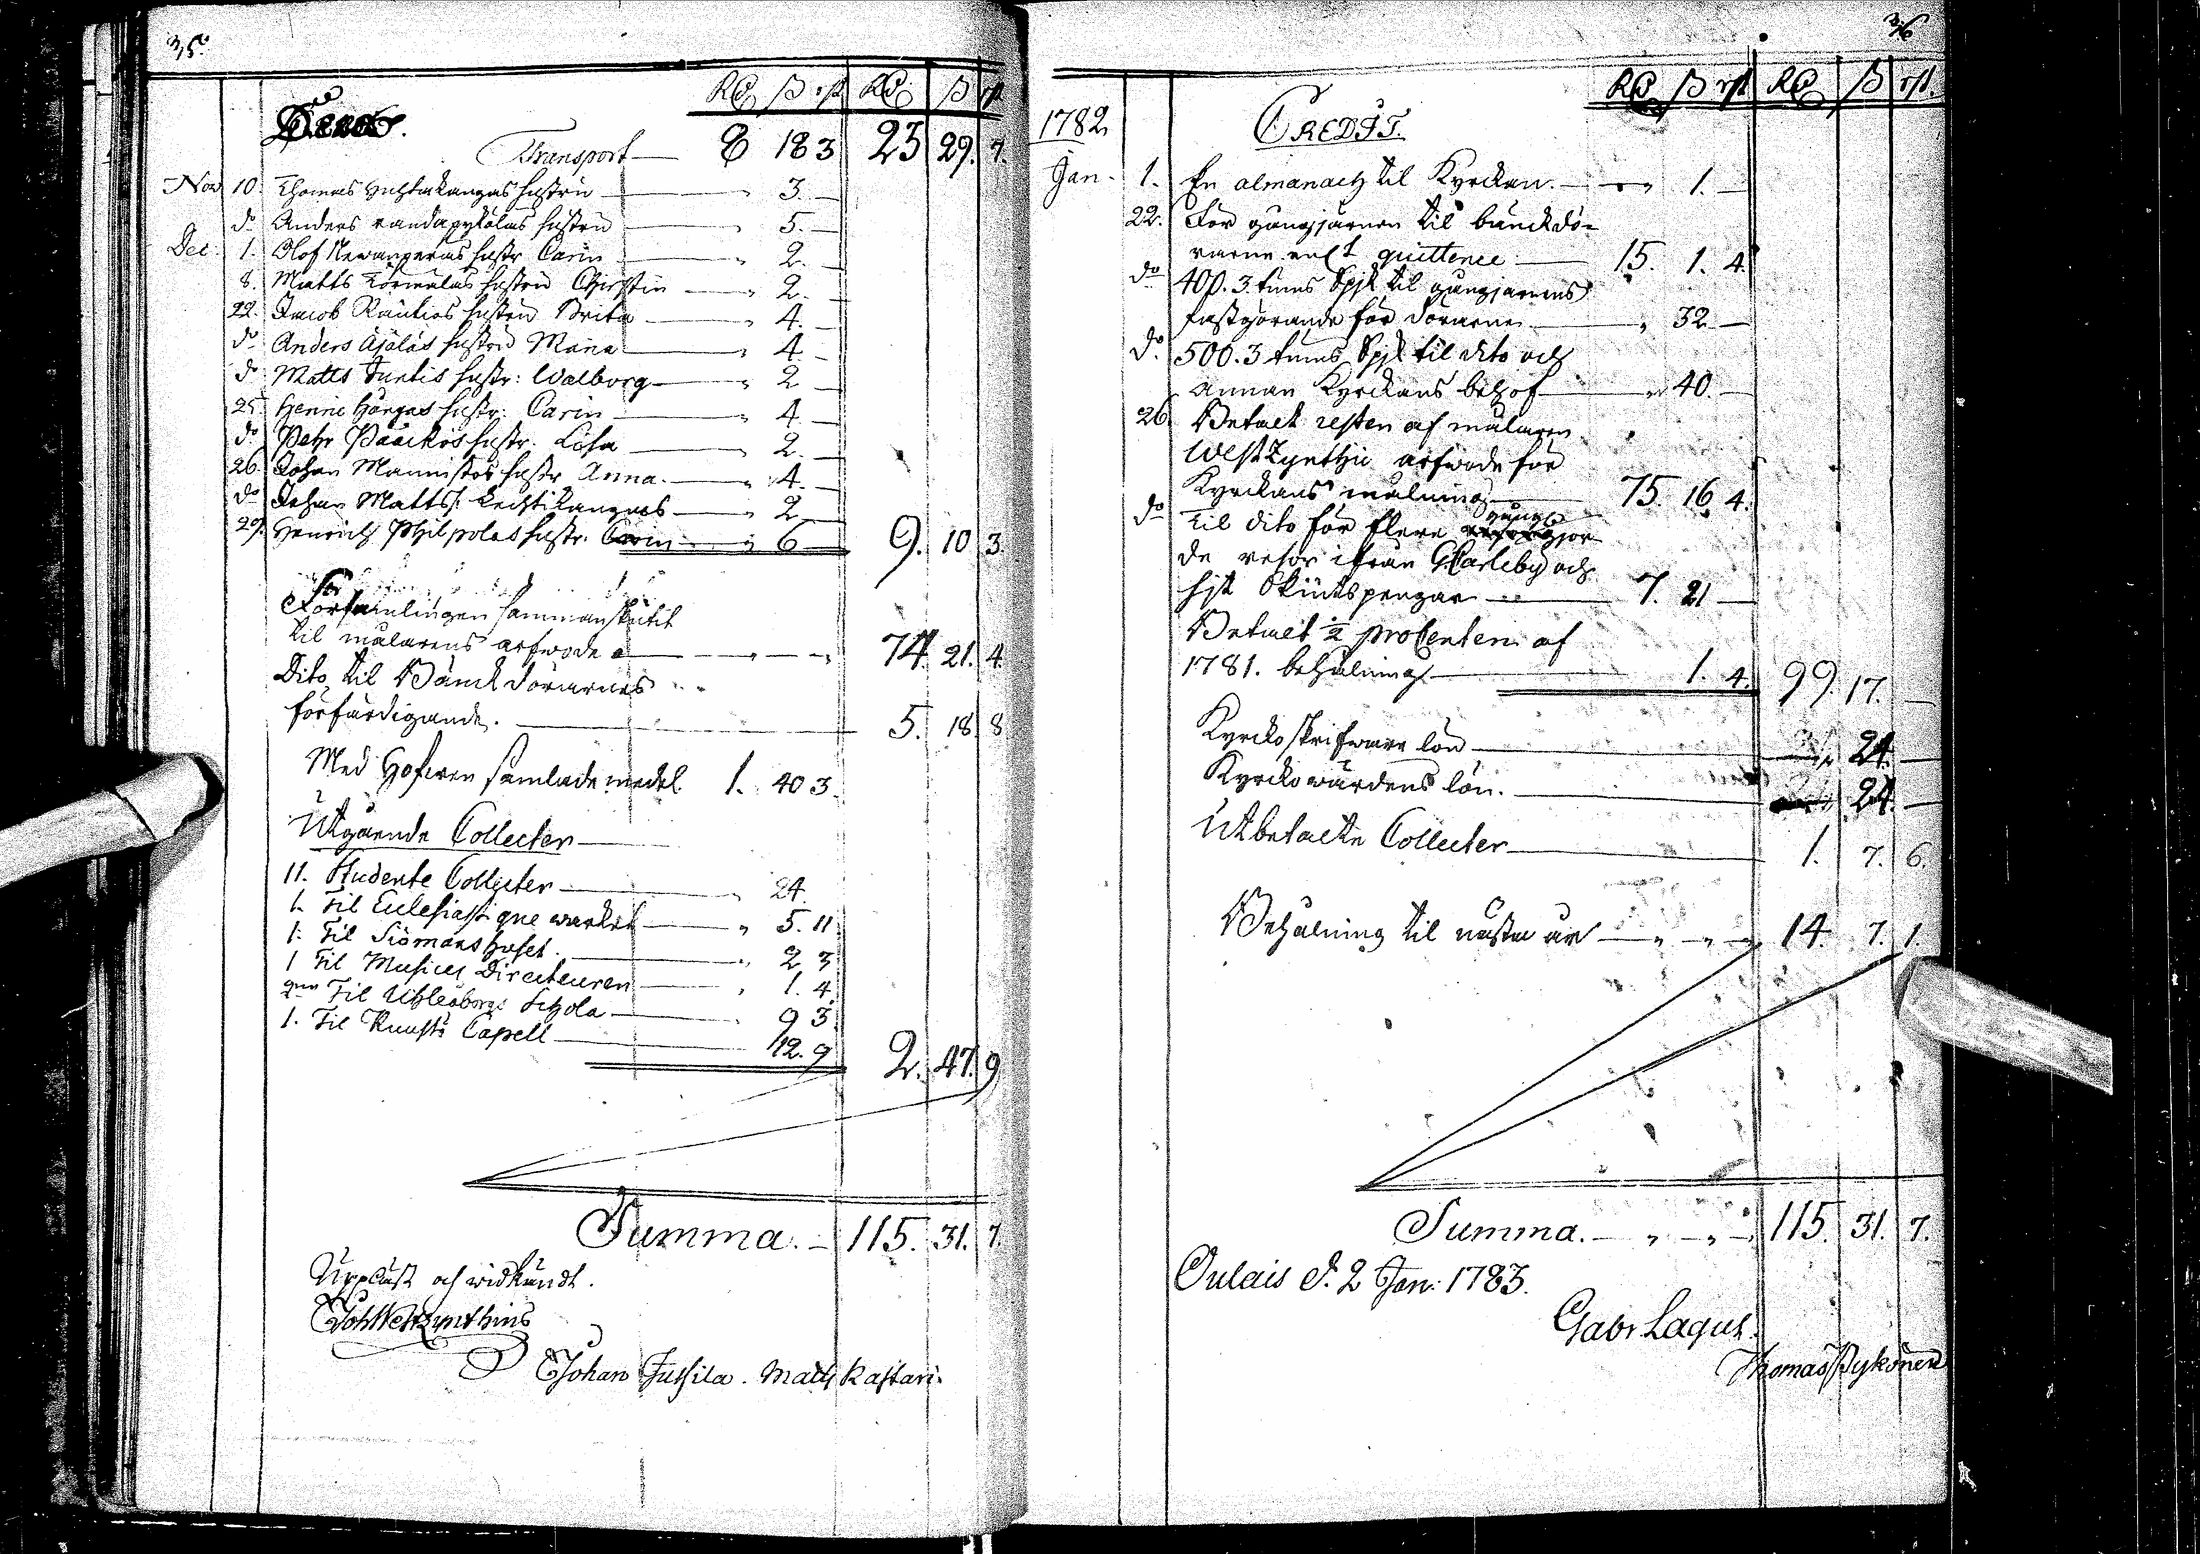 35.
Rd ß rst Rd ß rst
Debet.
Transport — 8 18 3 23 29. 7.
Nov 10. Thomas hustru — " 3. —
do Anders hustru — " 5. —
Dec. 1. Olof hustr Carin — " 2. —
8. Matts hustru Christin — " 2. —
22. Jacob Räntios hustru Brita — " 4. —
do Anders Äjäläs hustru Maria — " 4. —
do Matts Juntis hustr: Walborg — " 2 —
25. Henric hustr: Carin — " 4. —
do Pehr Pääckös hustr. Lisa — " 2. —
26. Johan Mannistös hustr Anna. — " 4. —
do Johan Mattss. — " 2 —
29. Henrich Philpolas hustr. Carin — " 6 — 9. 10 3.
Församlingen sammanskutit
til målarens arfwode — " — " 74. 21. 4.
Dito til Bänck dörarnes
förfärdigande. — 5. 18. 8
Med Hofwen samlade medel 1. 40 3.
Utgående Collecter —
11. Studente Collecter — " 24.
1. Til Eclesiastique wärcket — " 5. 11
1. Til Siömans huset. — " 2 3
1 Til Musices Directeuren — " 1. 4
Til Uhleåborgs Schola — " 9 3
1. Til Capell — 12. 9 2. 47. 9
Summa. — 115. 31. 7.
Uppläst och widkändt.
Joh Westzynthius
Johan Jussila. Matts Rastari.
36
Rd ß rst Rd ß rst.
1782 CREDIT.
Jan. 1. En almanach til Kyrckan. — " 1. —
22. För gångjärnen til bänckdö=
rarne enl: quittence — 15. 1. 4.
do 400. 3 tums Spjk til gångjärnens
fastgörande för dörarne — " 32 —
do 500. 3 tums Spjk til dito och
annan Kyrckans behof — " 40. —
26. Betalt resten af målaren
Westzynthii arfwode för
Kyrckans målning — 75. 16. 4.
do Til dito för flere gånge gjor
de resor ifrån G:Carleby och
hit Skjutspengar — 7. 21 —
Betalt ½ procenten af
1781. behålning — 1. 4. 99. 17. —
Kyrckoskrifware lön — " 24. —
Kyrckowärdens lön. — 24. —
Utbetalte Collecter — 1. 7. 6.
Behålning til nästa år — " — " — 14. 7. 1.
Summa. — " — " — 115. 31. 7.
Oulais d. 2 Jan: 1783.
Gabr Lagus.
Thomas Pykönen